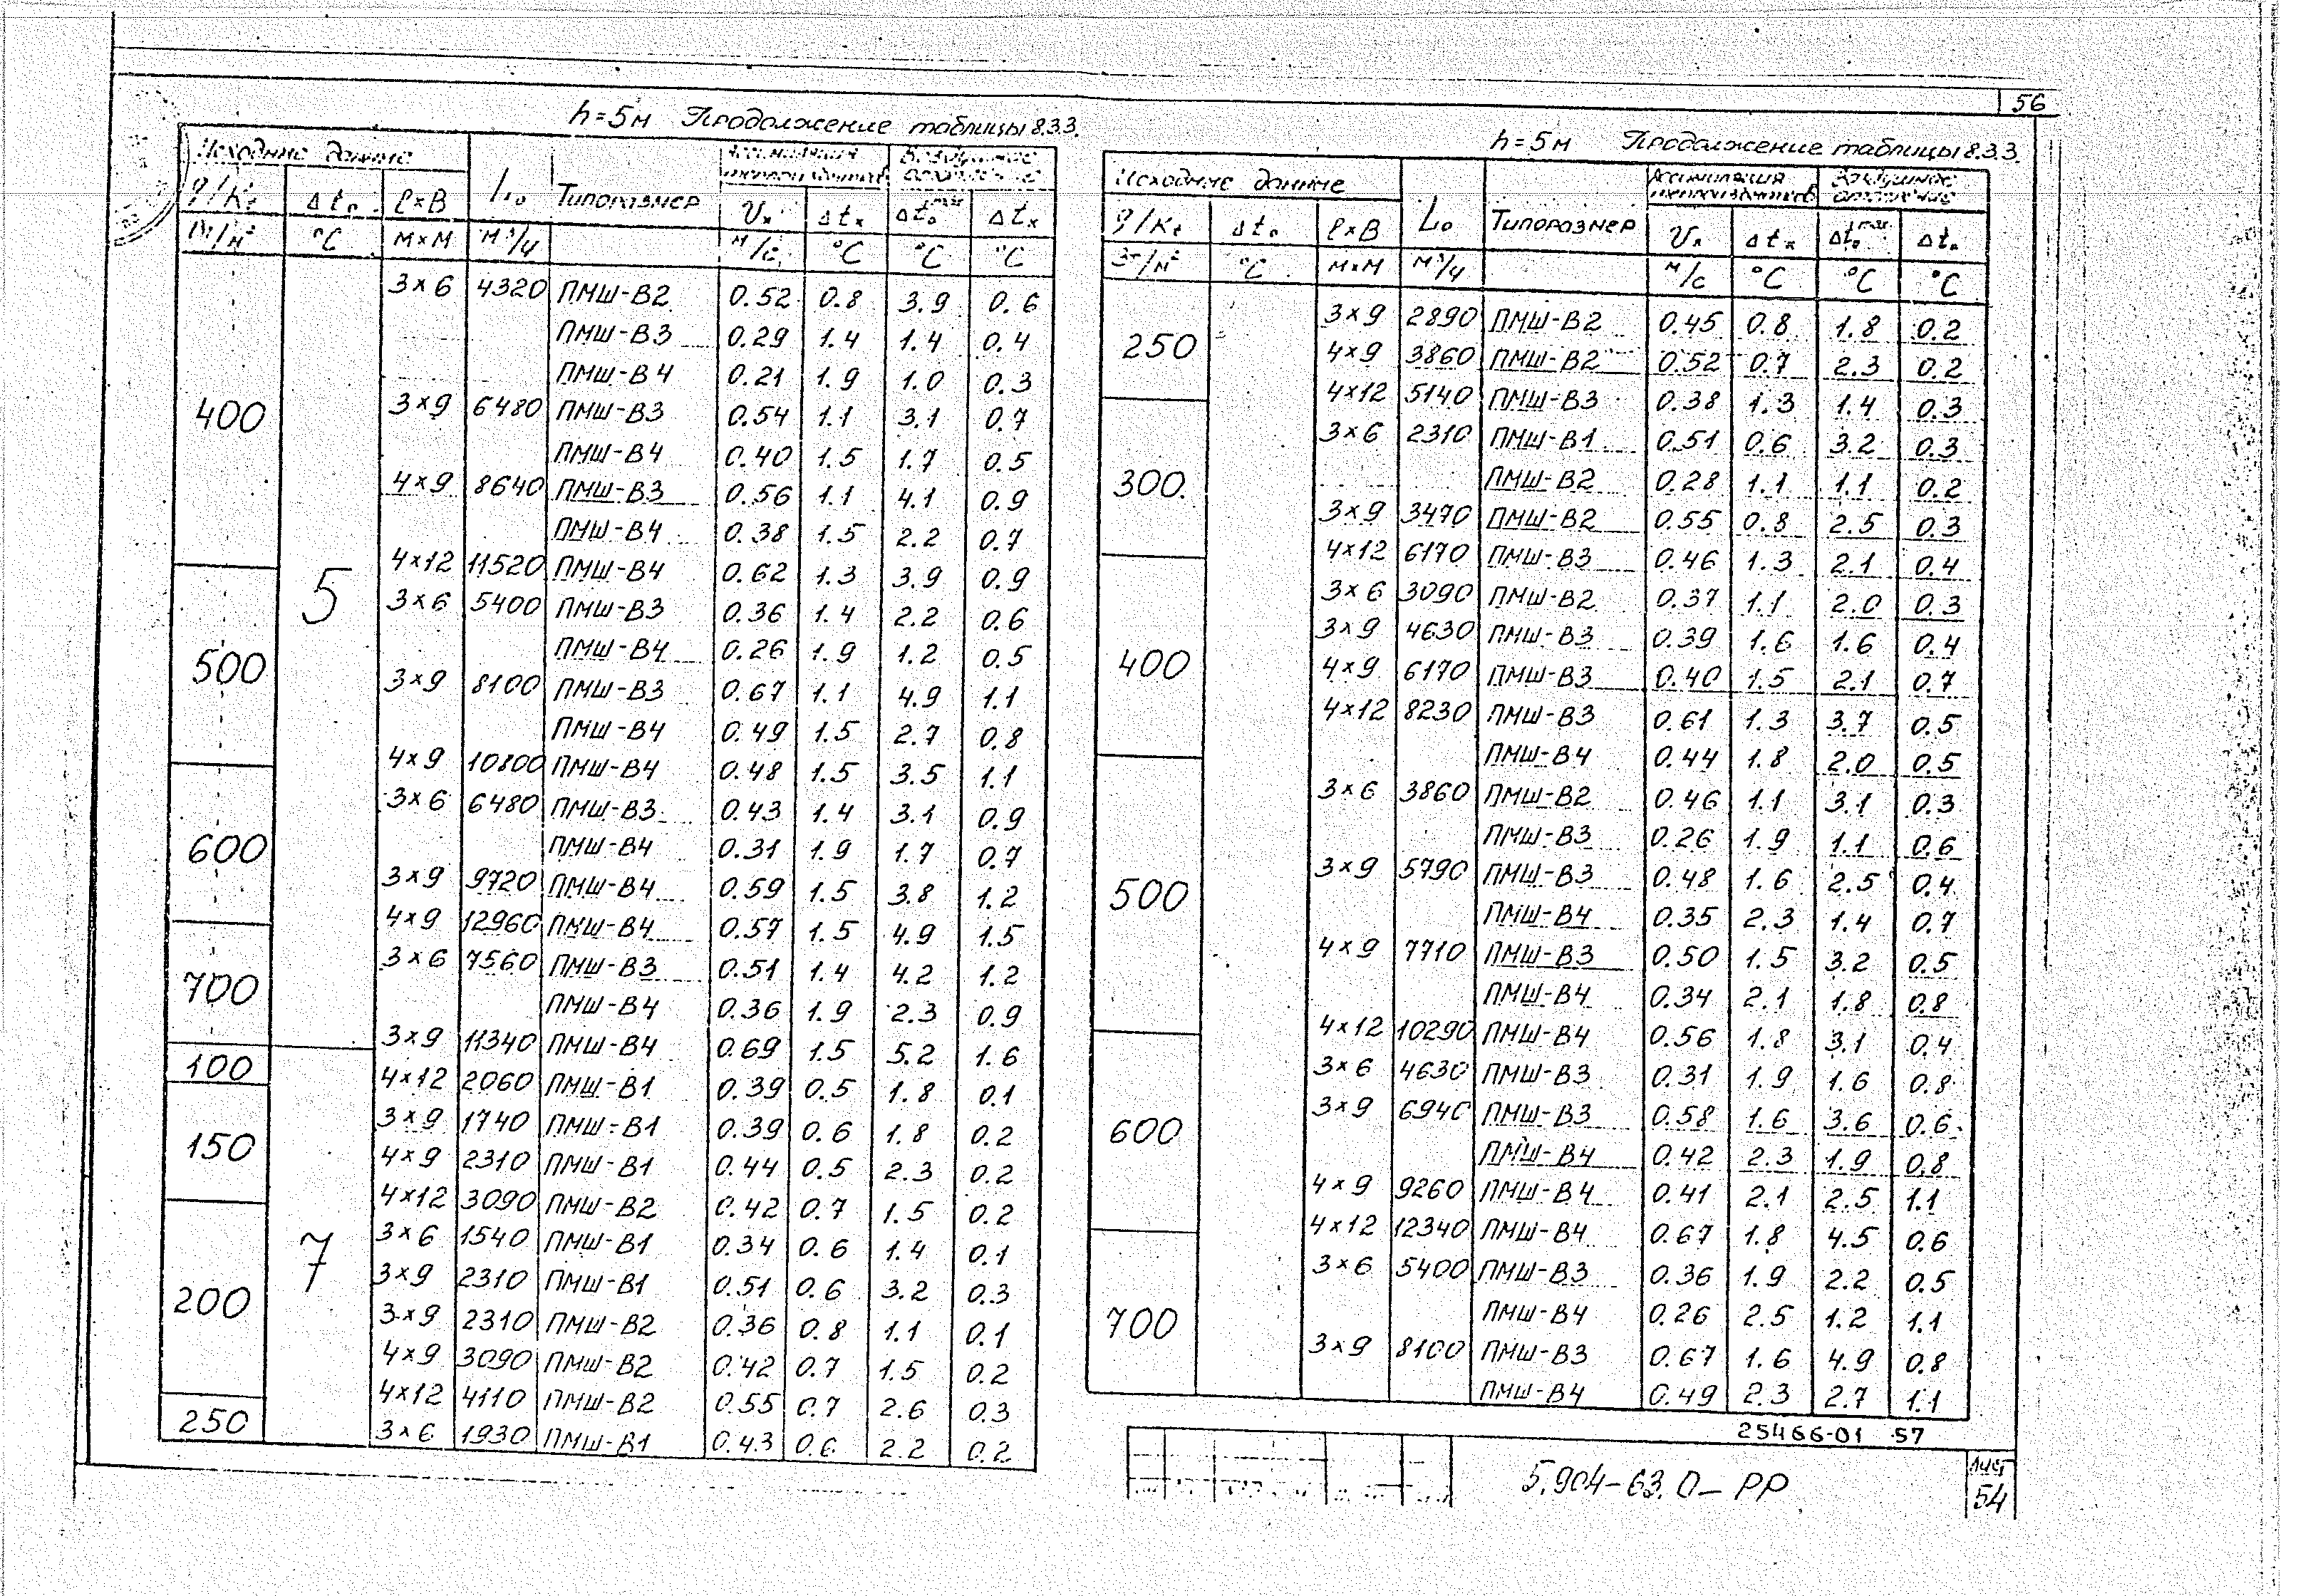 56
h=5м Продолжение таблицы 8.3.3.
Исходные данные L₀ Типоразмер Ассимиляция теплоизбытков Воздушное отопление
q/Kt Δt₀ l×B Vx Δtx Δt₀max Δtx
Вт/м² °C м×м м³/ч м/с °C °C °C
400 5 3×6 4320 ПМШ-В2 0.52 0.8 3.9 0.6
ПМШ-В3 0.29 1.4 1.4 0.4
ПМШ-В4 0.21 1.9 1.0 0.3
3×9 6480 ПМШ-В3 0.54 1.1 3.1 0.7
ПМШ-В4 0.40 1.5 1.7 0.5
4×9 8640 ПМШ-В3 0.56 1.1 4.1 0.9
ПМШ-В4 0.38 1.5 2.2 0.7
4×12 11520 ПМШ-В4 0.62 1.3 3.9 0.9
500 3×6 5400 ПМШ-В3 0.36 1.4 2.2 0.6
ПМШ-В4 0.26 1.9 1.2 0.5
3×9 8100 ПМШ-В3 0.67 1.1 4.9 1.1
ПМШ-В4 0.49 1.5 2.7 0.8
4×9 10800 ПМШ-В4 0.48 1.5 3.5 1.1
600 3×6 6480 ПМШ-В3 0.43 1.4 3.1 0.9
ПМШ-В4 0.31 1.9 1.7 0.7
3×9 9720 ПМШ-В4 0.59 1.5 3.8 1.2
4×9 12960 ПМШ-В4 0.57 1.5 4.9 1.5
700 3×6 7560 ПМШ-В3 0.51 1.4 4.2 1.2
ПМШ-В4 0.36 1.9 2.3 0.9
3×9 11340 ПМШ-В4 0.69 1.5 5.2 1.6
100 7 4×12 2060 ПМШ-В1 0.39 0.5 1.8 0.1
150 3×9 1740 ПМШ-В1 0.39 0.6 1.8 0.2
4×9 2310 ПМШ-В1 0.44 0.5 2.3 0.2
4×12 3090 ПМШ-В2 0.42 0.7 1.5 0.2
200 3×6 1540 ПМШ-В1 0.34 0.6 1.4 0.1
3×9 2310 ПМШ-В1 0.51 0.6 3.2 0.3
3×9 2310 ПМШ-В2 0.36 0.8 1.1 0.1
4×9 3090 ПМШ-В2 0.42 0.7 1.5 0.2
4×12 4110 ПМШ-В2 0.55 0.7 2.6 0.3
250 3×6 1930 ПМШ-В1 0.43 0.6 2.2 0.2
h=5м Продолжение таблицы 8.3.3.
Исходные данные L₀ Типоразмер Ассимиляция теплоизбытков Воздушное отопление
q/Kt Δt₀ l×B Vx Δtx Δt₀max Δtx
Вт/м² °C м×м м³/ч м/с °C °C °C
250 3×9 2890 ПМШ-В2 0.45 0.8 1.8 0.2
4×9 3860 ПМШ-В2 0.52 0.7 2.3 0.2
4×12 5140 ПМШ-В3 0.38 1.3 1.4 0.3
300 3×6 2310 ПМШ-В1 0.51 0.6 3.2 0.3
ПМШ-В2 0.28 1.1 1.1 0.2
3×9 3470 ПМШ-В2 0.55 0.8 2.5 0.3
4×12 6170 ПМШ-В3 0.46 1.3 2.1 0.4
400 3×6 3090 ПМШ-В2 0.37 1.1 2.0 0.3
3×9 4630 ПМШ-В3 0.39 1.6 1.6 0.4
4×9 6170 ПМШ-В3 0.40 1.5 2.1 0.7
4×12 8230 ПМШ-В3 0.61 1.3 3.7 0.5
ПМШ-В4 0.44 1.8 2.0 0.5
500 3×6 3860 ПМШ-В2 0.46 1.1 3.1 0.3
ПМШ-В3 0.26 1.9 1.1 0.6
3×9 5790 ПМШ-В3 0.48 1.6 2.5 0.4
ПМШ-В4 0.35 2.3 1.4 0.7
4×9 7710 ПМШ-В3 0.50 1.5 3.2 0.5
ПМШ-В4 0.34 2.1 1.8 0.8
4×12 10290 ПМШ-В4 0.56 1.8 3.1 0.4
600 3×6 4630 ПМШ-В3 0.31 1.9 1.6 0.8
3×9 6940 ПМШ-В3 0.58 1.6 3.6 0.6
ПМШ-В4 0.42 2.3 1.9 0.8
4×9 9260 ПМШ-В4 0.41 2.1 2.5 1.1
4×12 12340 ПМШ-В4 0.67 1.8 4.5 0.6
700 3×6 5400 ПМШ-В3 0.36 1.9 2.2 0.5
ПМШ-В4 0.26 2.5 1.2 1.1
3×9 8100 ПМШ-В3 0.67 1.6 4.9 0.8
ПМШ-В4 0.49 2.3 2.7 1.1
25466-01 57
5.904-63.0-РР
Лист
54